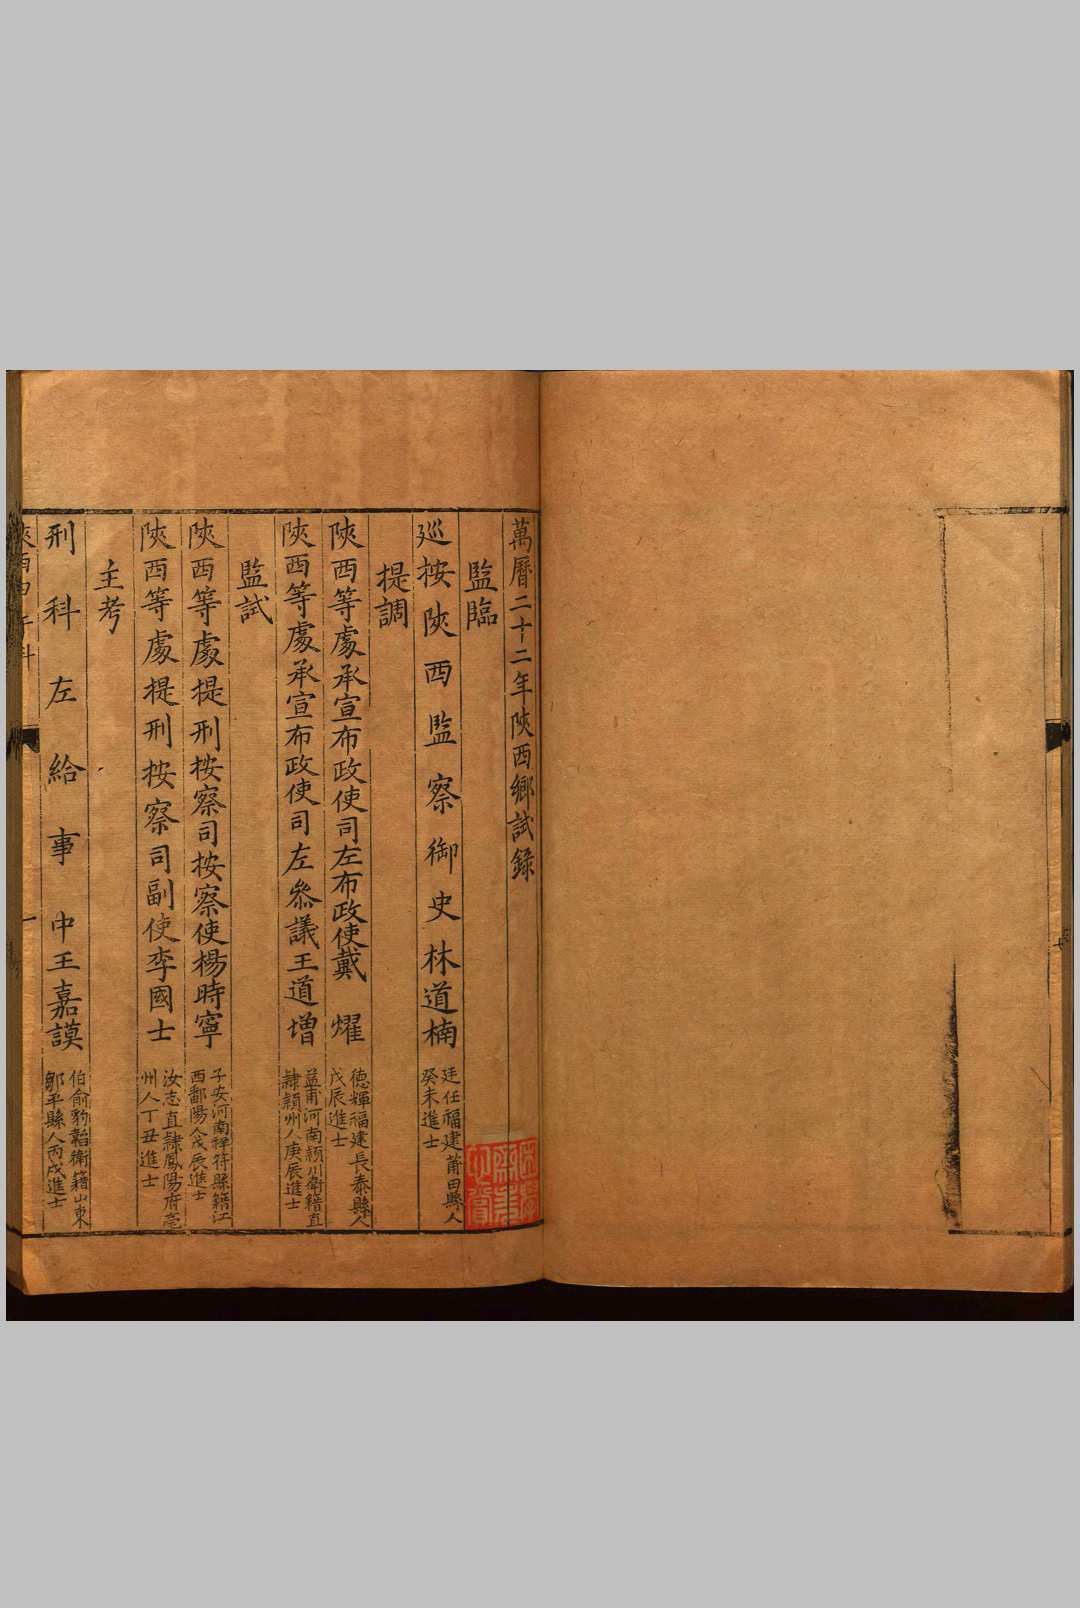 萬曆二十二年陝西鄉試錄
監臨
巡按陝西監察御史林道楠 廷任福建莆田縣人
癸未進士
提調
陝西等處承宣布政使司左布政使戴燿 德輝福建長泰縣人
戊辰進士
陝西等處承宣布政使司左叅議王道增 益甫河南潁川衛籍直
隸潁州人庚辰進士
監試
陝西等處提刑按察司按察使楊時寧 子安河南祥符縣籍江
西鄱陽人戊辰進士
陝西等處提刑按察司副使李國士 汝志直隸鳳陽府亳
州人丁丑進士
主考
刑科左給事中王嘉謨 伯俞豹韜衛籍山東
鄒平縣人丙戌進士
陝西甲午科 一